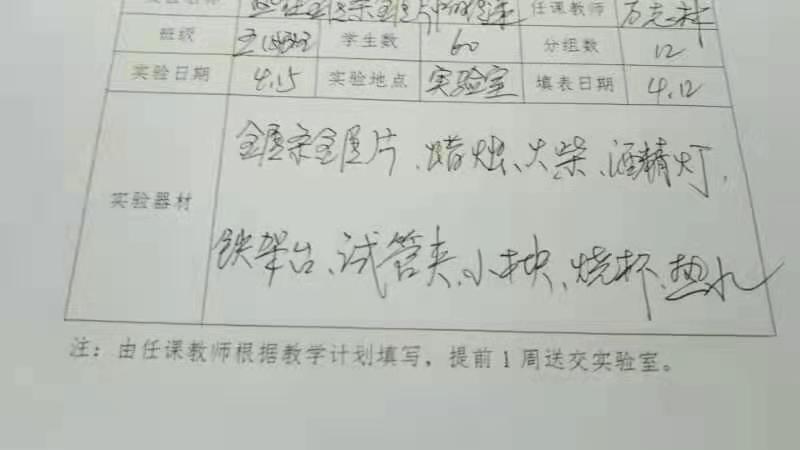 任课教师
班级 学生数 60 分组数 12
实验日期 4.15 实验地点 实验室 填表日期 4.12
实验器材
金属条金属片、蜡烛、火柴、酒精灯、
铁架台、试管夹、小木块、烧杯、热水
注：由任课教师根据教学计划填写，提前1周送交实验室。